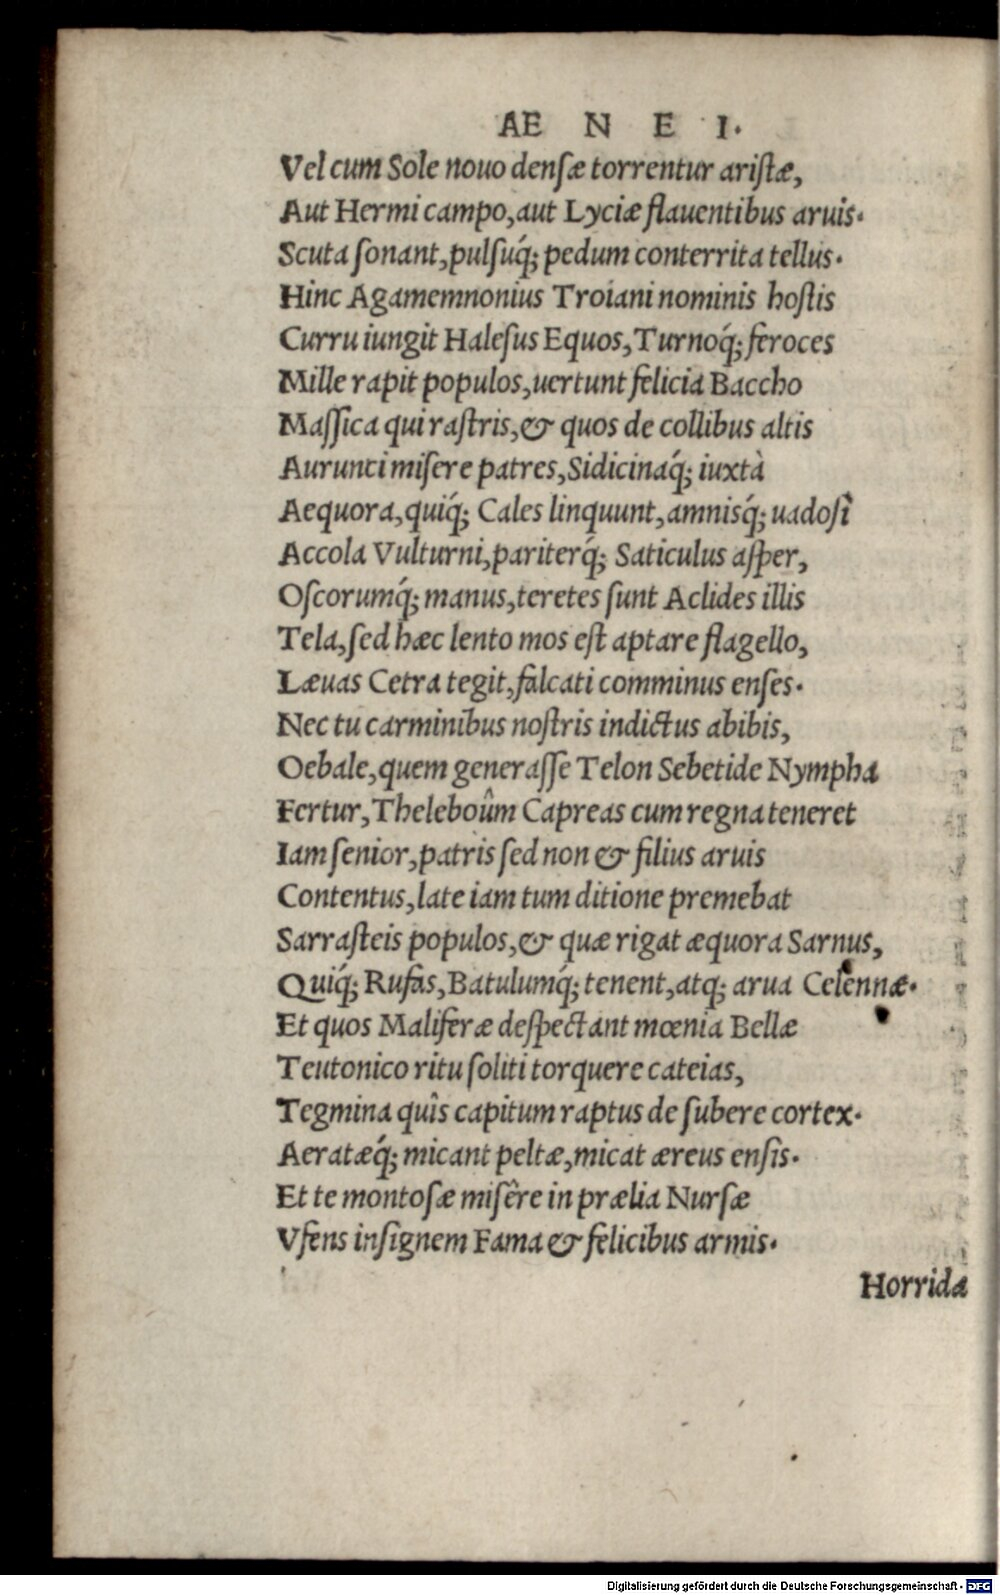 AE N E I.
Vel cum Sole nouo densæ torrentur aristæ,
Aut Hermi campo,aut Lyciæ flauentibus aruis.
Scuta sonant,pulsuq́; pedum conterrita tellus.
Hinc Agamemnonius Troiani nominis hostis
Curru iungit Halesus Equos,Turnoq́; feroces
Mille rapit populos,uertunt felicia Baccho
Massica qui rastris,& quos de collibus altis
Aurunci misere patres,Sidicinaq́; iuxtà
Aequora,quiq́; Cales linquunt,amnisq́; uadosi
Accola Vulturni,pariterq́; Saticulus asper,
Oscorumq́; manus,teretes sunt Aclides illis
Tela,sed hæc lento mos est aptare flagello,
Læuas Cetra tegit,falcati comminus enses.
Nec tu carminibus nostris indictus abibis,
Oebale,quem generasse Telon Sebetide Nympha
Fertur,Theleboûm Capreas cum regna teneret
Iam senior,patris sed non & filius aruis
Contentus,late iam tum ditione premebat
Sarrasteis populos,& quæ rigat æquora Sarnus,
Quiq́; Rufas,Batulumq́; tenent,atq; arua Celennæ.
Et quos Maliferæ despectant mœnia Bellæ
Teutonico ritu soliti torquere cateias,
Tegmina quîs capitum raptus de subere cortex.
Aeratæq́; micant peltæ,micat æreus ensis.
Et te montosæ misêre in prælia Nursæ
Vfens insignem Fama & felicibus armis.
Horrida
Digitalisierung gefördert durch die Deutsche Forschungsgemeinschaft - DFG